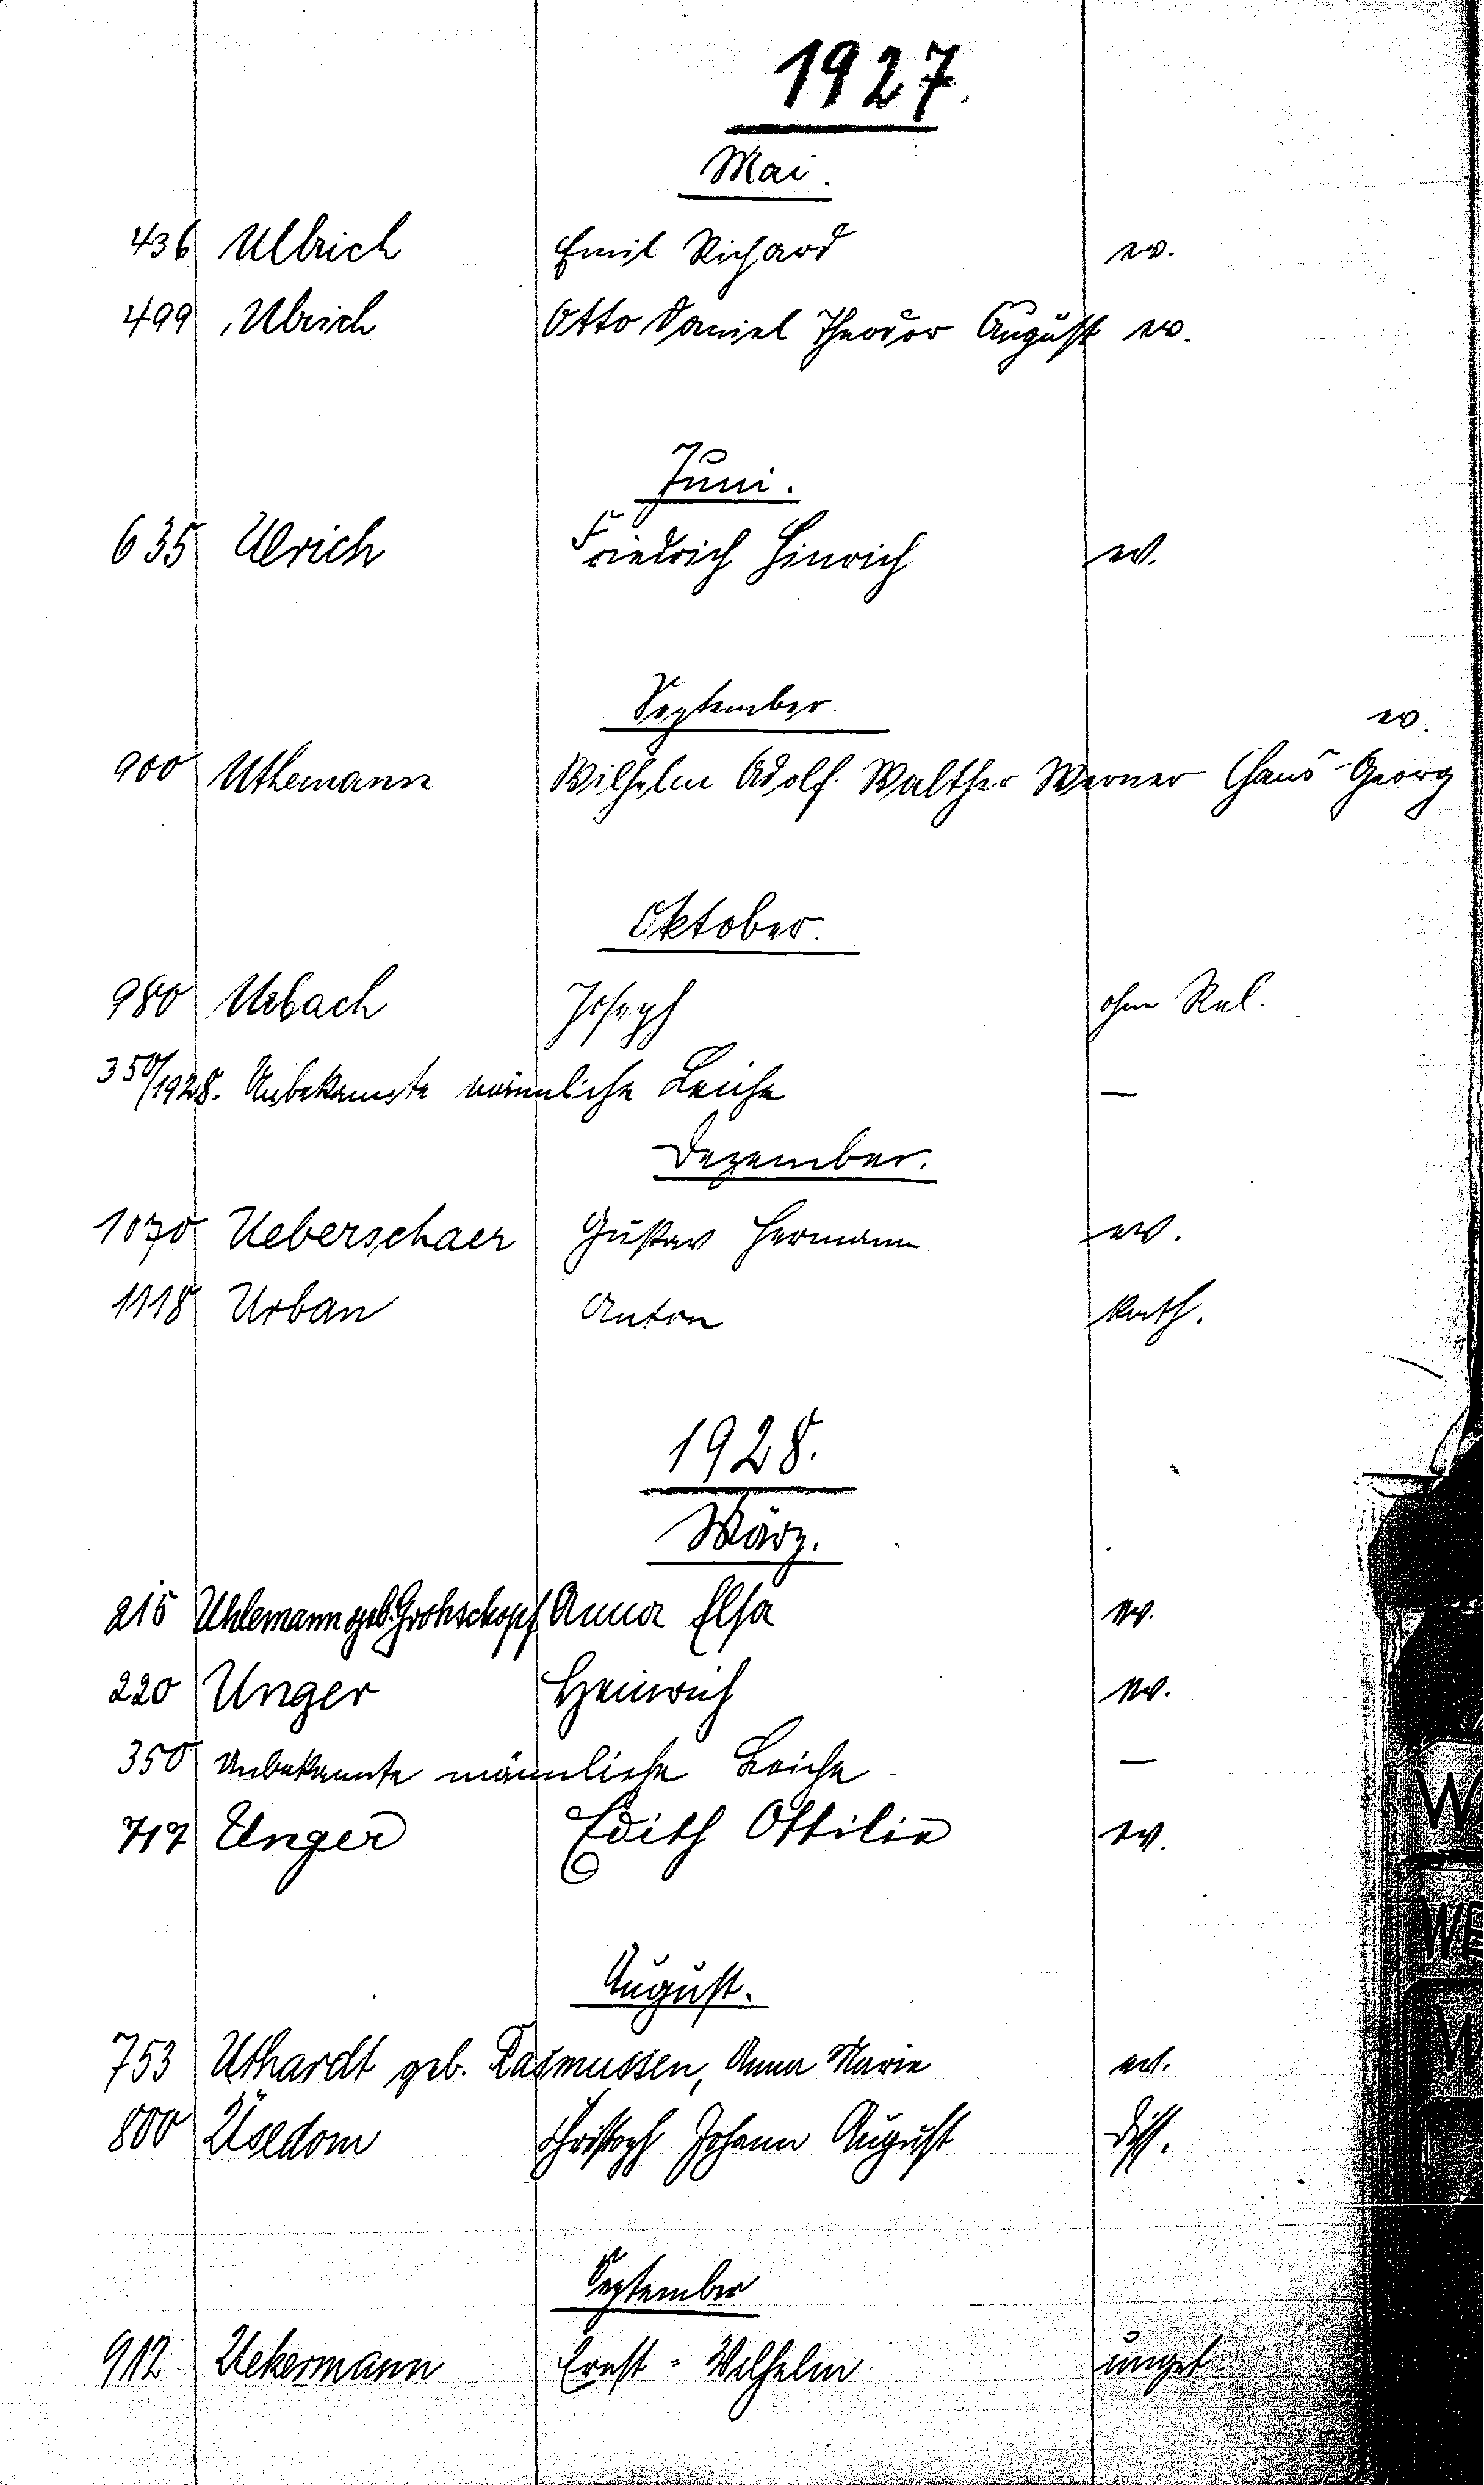 1927.
Mai.
436 Ullrich Emil Richard ev.
499 Ulrich Otto Daniel Theodor August ev.
Juni.
635 Ulrich Friedrich Hinrich ev.
September
ev.
900 Uthemann Wilhelm Adolf Walther Werner Hans-Georg
Oktober.
980 Urbach Joseph ohne Rel.
350/1928. Unbekannte männliche Leiche —
Dezember.
1070 Ueberschaer Gustav Hermann ev.
1118 Urban Anton kath.
1928.
März.
215 Uhlemann geb. Grohschopf Anna Elsa ev.
220 Unger Heinrich ev.
350 Unbekannte männliche Leiche —
717 Unger Edith Ottilie ev.
August.
753 Uthardt geb. Rasmussen, Anna Marie ev.
800 Usedom Christoph Johann August diss.
September
912 Uekermann Ernst-Wilhelm unget.
W
WE
W